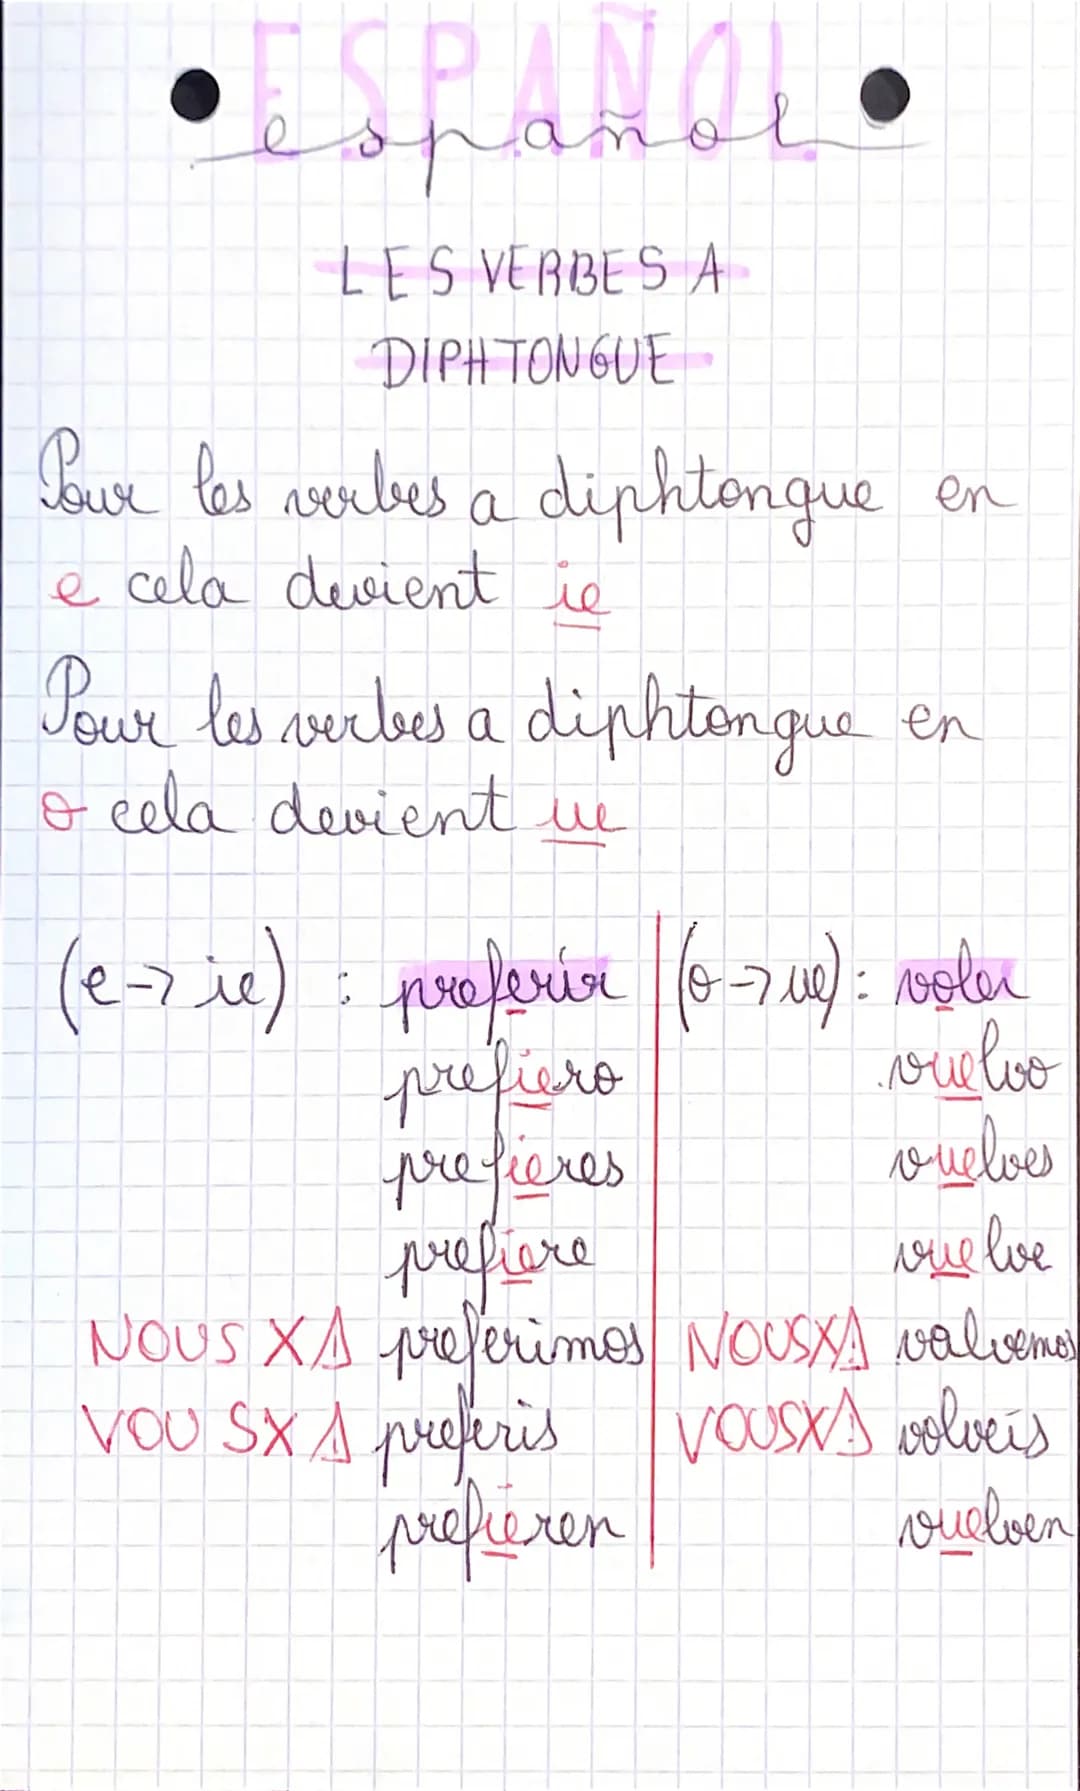 ESPAÑOL
español
LES VERBES A
DIPHTONGUE
Pour les verbes a diphtongue en
e cela devient ie
Pour les verbes a diphtongue en
o cela devient ue
(e→ie) : preferir
prefiero
prefieres
prefiere
NOUS X⚠ preferimos
VOUS X⚠ preferis
prefieren
(o→ue) : voler
vuelvo
vuelves
vuelve
NOUS X⚠ valvemos
VOUS X⚠ volveis
vuelven